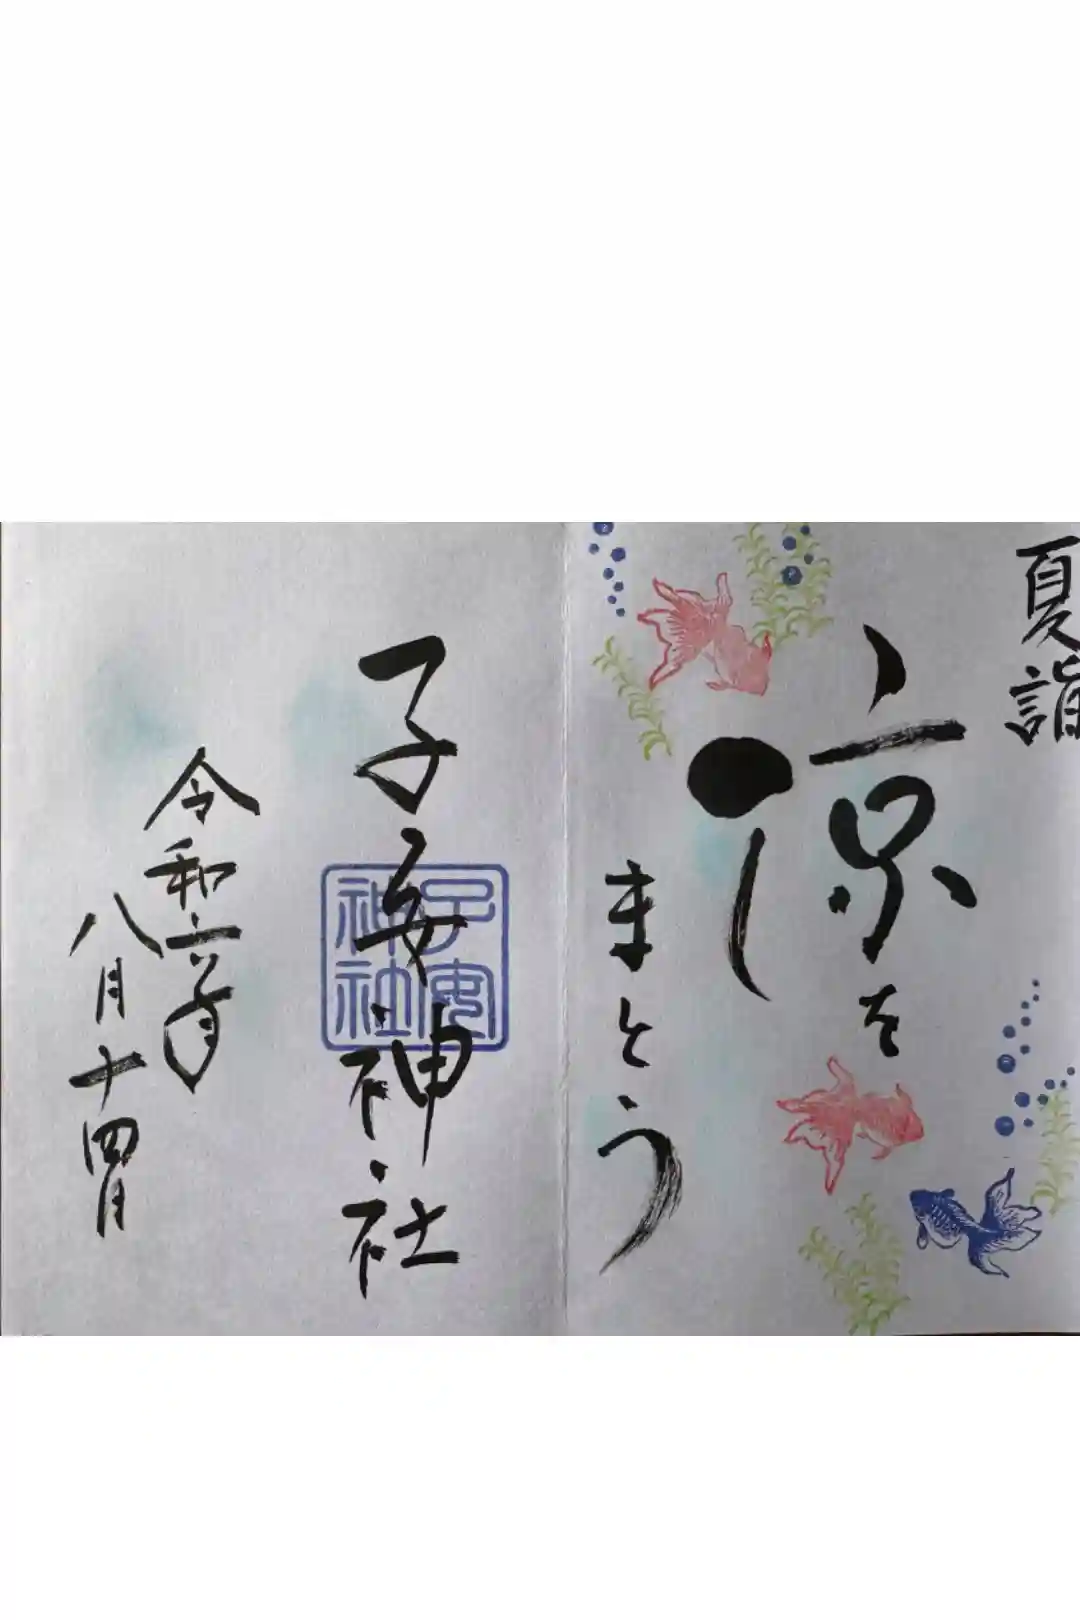 夏詣
涼を
まとう
子安神社
子安神社
令和六年
八月十四日